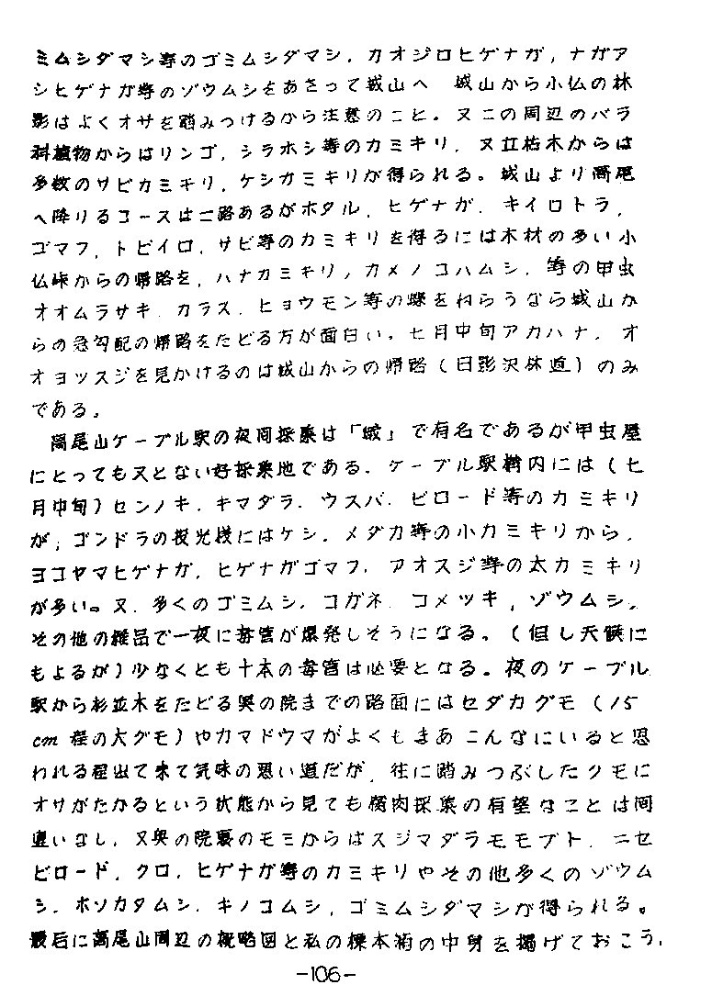 ミムシダマシ等のゴミムシダマシ，カオジロヒゲナガ，ナガア
シヒゲナガ等のゾウムシをあさって城山へ 城山から小仏の林
影はよくオサを踏みつけるから注意のこと。又この周辺のバラ
科植物からはリンゴ，シラホシ等のカミキリ，又立枯木からは
多数のサビカミキリ，ケシカミキリが得られる。城山より高尾
へ降りるコースは二路あるがホタル，ヒゲナガ．キイロトラ，
ゴマフ，トビイロ，サビ等のカミキリを得るには木材の多い小
仏峠からの帰路を，ハナカミキリ，カメノコハムシ，等の甲虫
オオムラサキ．カラス．ヒョウモン等の蝶をねらうなら城山か
らの急勾配の帰路をたどる方が面白い。七月中旬アカハナ，オ
オヨツスジを見かけるのは城山からの帰路（日影沢林道）のみ
である。
高尾山ケーブル駅の夜間採集は「蛾」で有名であるが甲虫屋
にとっても又とない好採集地である．ケーブル駅構内には（七
月中旬）センノキ．キマダラ．ウスバ．ビロード等のカミキリ
が，ゴンドラの夜光燈にはケシ．メダカ等の小カミキリから，
ヨコヤマヒゲナガ，ヒゲナガゴマフ，アオスジ等の太カミキリ
が多い。又．多くのゴミムシ，コガネ．コメツキ，ゾウムシ，
その他の雑品で一夜に毒管が爆発しそうになる。（但し天候に
もよるが）少なくとも十本の毒管は必要となる。夜のケーブル
駅から杉並木をたどる奥の院までの路面にはセダカグモ（15
cm程の大グモ）やカマドウマがよくもまあこんなにいると思
われる程出て来て気味の悪い道だが，往に踏みつぶしたクモに
オサがたかるという状態から見ても腐肉採集の有望なことは間
違いなし，又奥の院裏のモミからはスジマダラモモブト．ニセ
ビロード，クロ，ヒゲナガ等のカミキリやその他多くのゾウム
シ．ホソカタムシ．キノコムシ，ゴミムシダマシが得られる。
最后に高尾山周辺の概略図と私の標本箱の中身を掲げておこう．
-106-